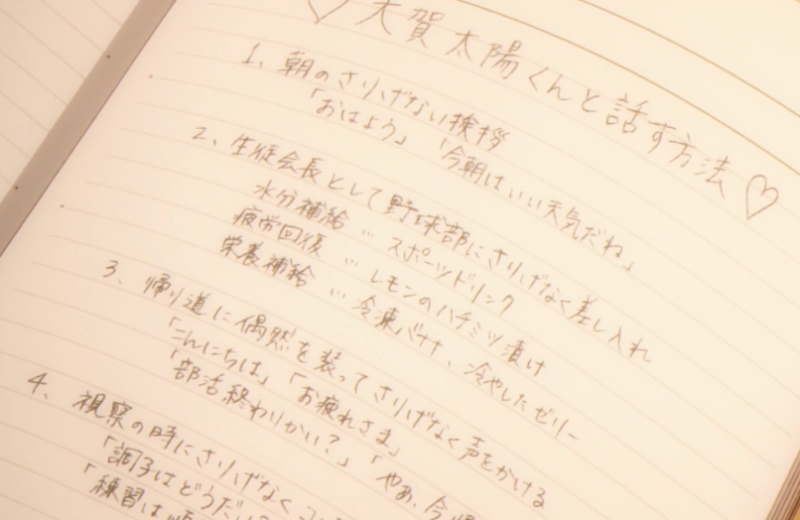 ♡ 大賀太陽くんと話す方法 ♡
1、朝のさりげない挨拶
「おはよう」「今朝はいい天気だね」
2、生徒会長として野球部にさりげなく差し入れ
水分補給 … スポーツドリンク
疲労回復 … レモンのハチミツ漬け
栄養補給 … 冷凍バナナ、冷やしたゼリー
3、帰り道に偶然を装ってさりげなく声をかける
「こんにちは」「お疲れさま」
「部活終わりかい?」「やあ、今帰
4、視察の時にさりげなくコ
「調子はどうだい?
「練習は順